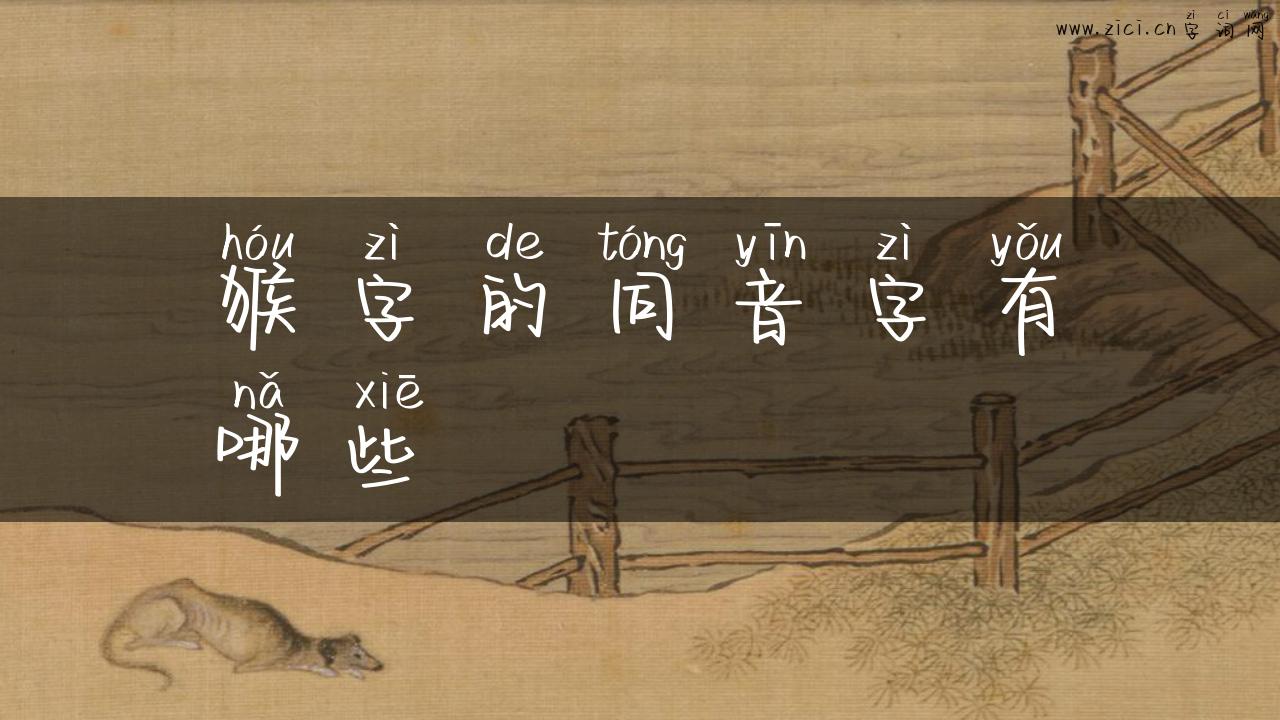 zì cí wǎng
www.zici.cn字词网
hóu zì de tóng yīn zì yǒu
猴字的同音字有
nǎ xiē
哪些